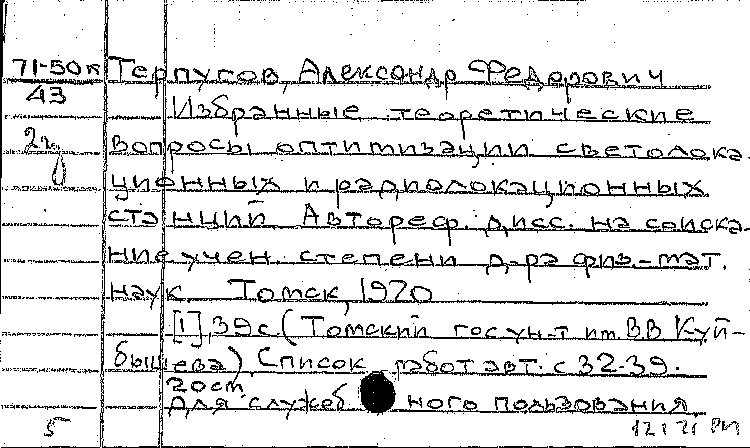 71-50к Терпугов, Александр Федорович
43
Избранные теоретические
вопросы оптимизации светолока-
ционных и радиолокационных
станций Автореф. дисс. на соиска-
ние учен. степени д-ра физ.-мат.
наук. Томск, 1970
[1], 39с. (Томский гос ун-т им. ВВ Куй-
бышева) Список работ авт. с 32-39.
20 ст.
Для служебного пользования
5